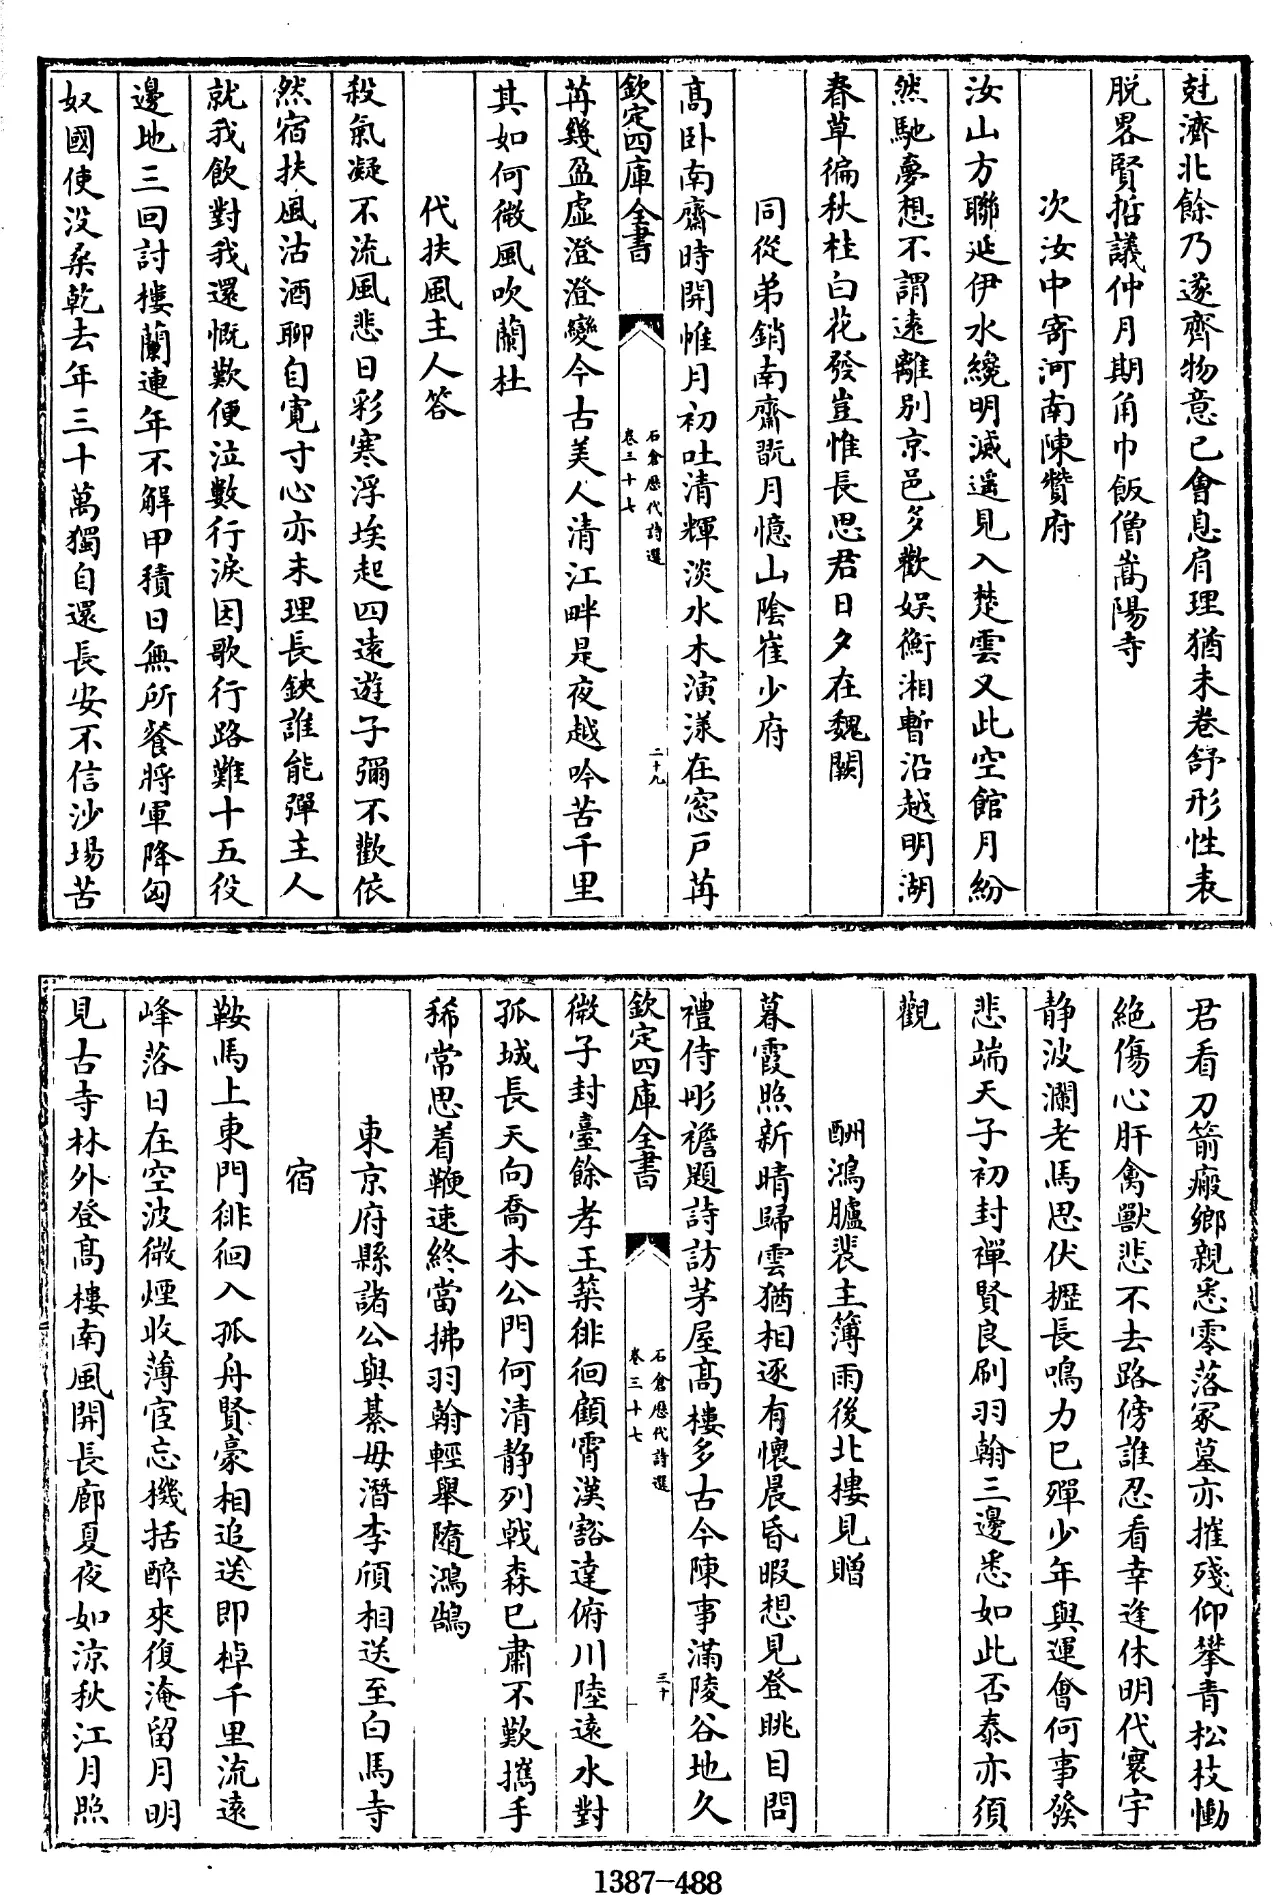 兙濟北餘乃遂齊物意已會息肩理猶未卷舒形性表
脱畧賢哲議仲月期角巾飯僧嵩陽寺
次汝中寄河南陳贊府
汝山方聯延伊水纔明滅遥見入楚雲又此空館月紛
然馳夢想不謂遠離别京邑多歡娱衡湘暫沿越明湖
春草徧秋桂白花發豈惟長思君日夕在魏闕
同從弟銷南齋翫月憶山陰崔少府
髙卧南齋時開帷月初吐清輝淡水木演漾在窓戸苒
欽定四庫全書
石倉歴代詩選
卷三十七
二十九
苒幾盈虚澄澄變今古美人清江畔是夜越吟苦千里
其如何微風吹蘭杜
代扶風主人答
殺氣凝不流風悲日彩寒浮埃起四逺遊子彌不歡依
然宿扶風沽酒聊自寛寸心亦未理長鋏誰能彈主人
就我飲對我還慨歎便泣數行淚因歌行路難十五役
邊地三回討樓蘭連年不解甲積日無所餐將軍降匈
奴國使没桑乾去年三十萬獨自還長安不信沙塲苦
君看刀箭瘢鄉親悉零落冢墓亦摧殘仰攀青松枝慟
絶傷心肝禽獸悲不去路傍誰忍看幸逢休明代寰宇
静波瀾老馬思伏櫪長鳴力已殫少年與運會何事發
悲端天子初封禪賢良刷羽翰三邊悉如此否泰亦須
觀
酬鴻臚裴主簿雨後北樓見贈
暮霞照新晴歸雲猶相逐有懷晨昏暇想見登眺目問
禮侍彤襜題詩訪茅屋髙樓多古今陳事滿陵谷地久
欽定四庫全書
石倉歴代詩選
卷三十七
三十
微子封臺餘孝王築徘徊顧霄漢豁達俯川陸逺水對
孤城長天向喬木公門何清静列㦸森已肅不歎攜手
稀常思着鞭速終當拂羽翰輕舉隨鴻鵠
東京府縣諸公與綦毋潛李頎相送至白馬寺
宿
鞍馬上東門徘徊入孤舟賢豪相追送即棹千里流逺
峰落日在空波微煙收薄宦忘機括醉來復淹留月明
見古寺林外登髙樓南風開長廊夏夜如涼秋江月照
1387-488